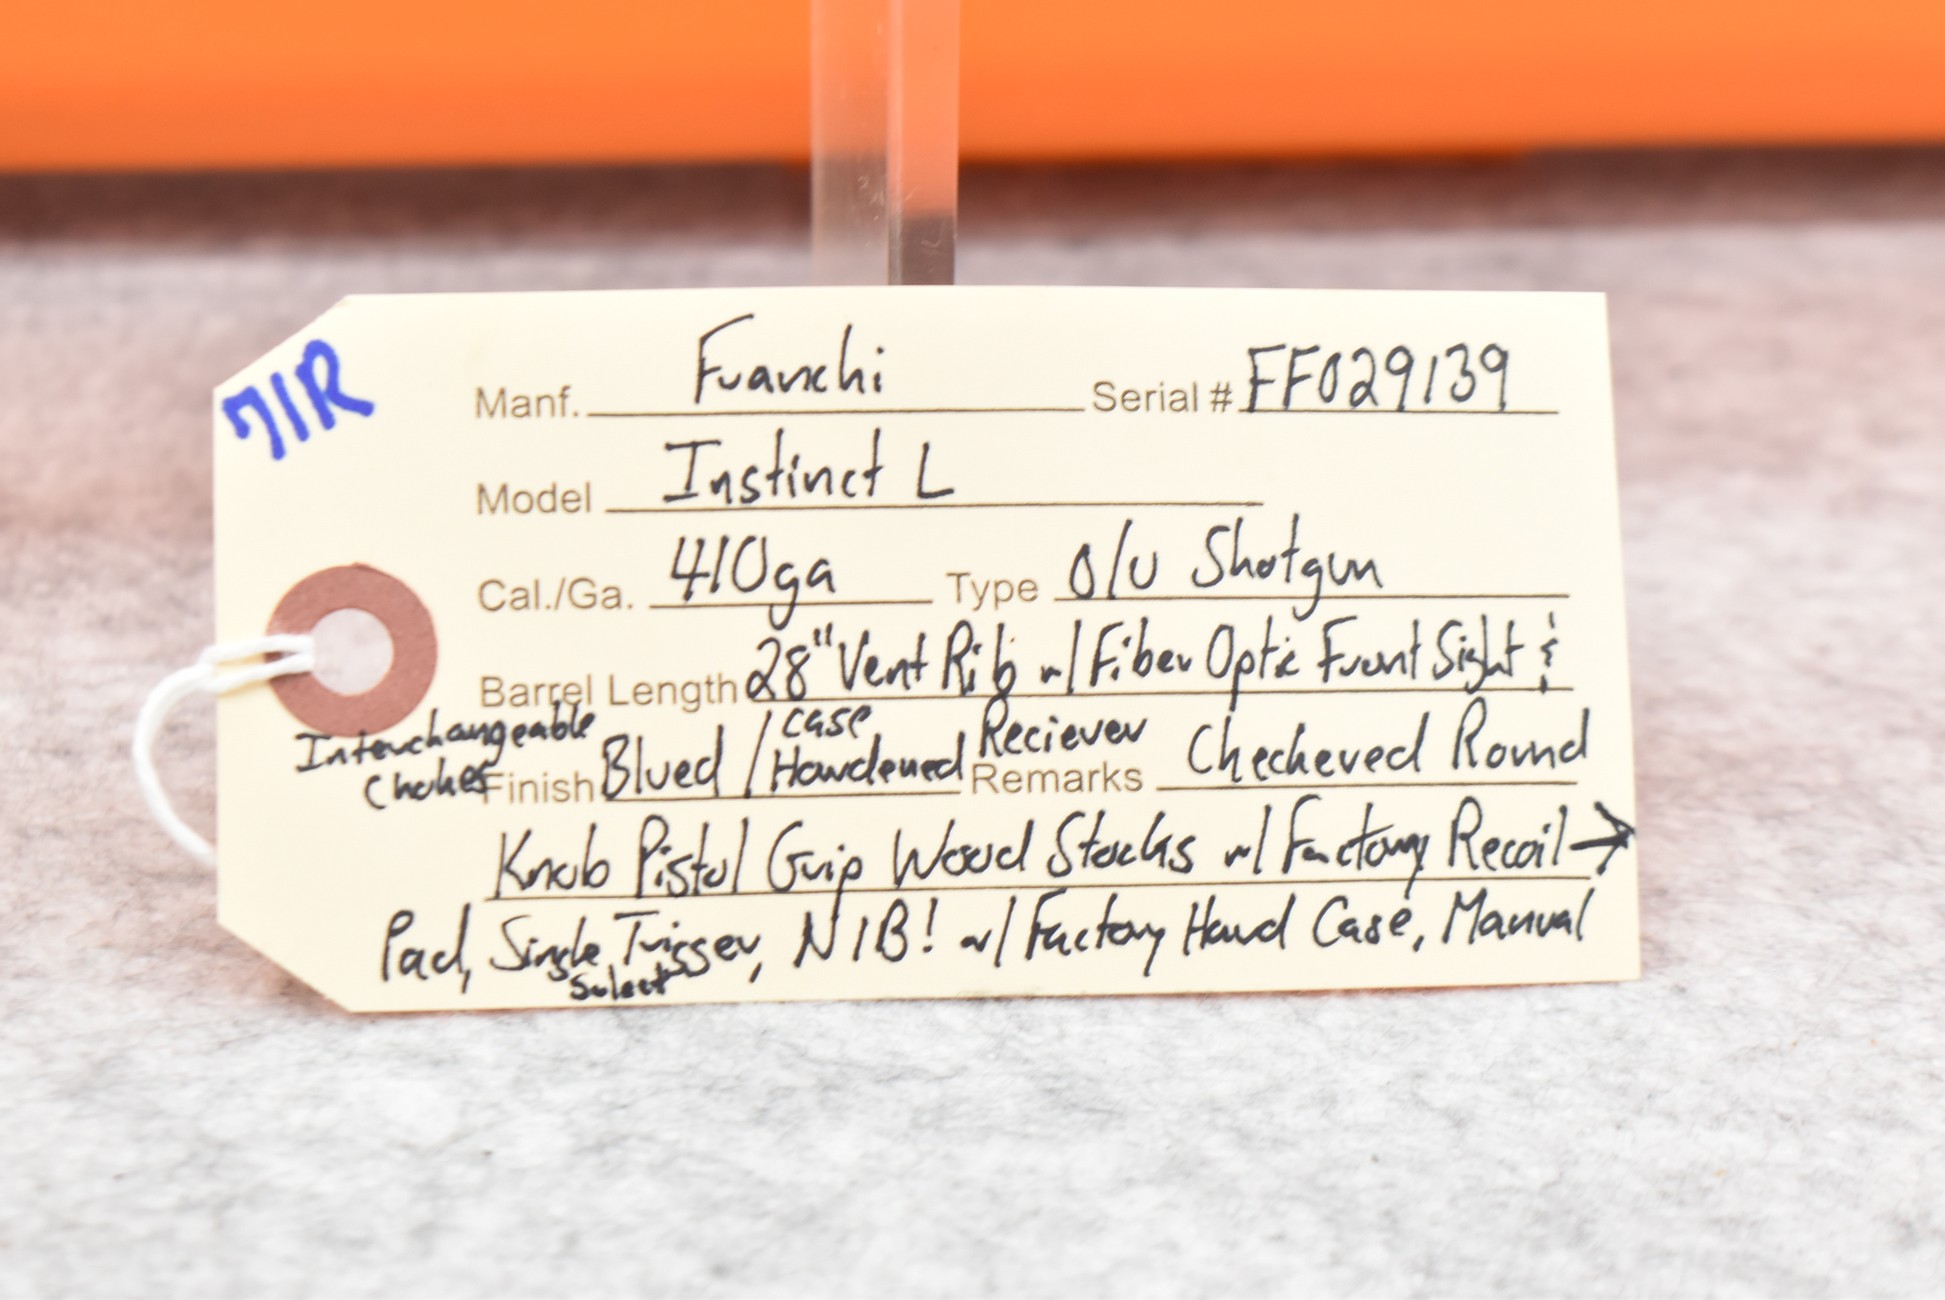 71R
Manf. Franchi Serial # FF029139
Model Instinct L
Cal./Ga. 410ga Type O/U Shotgun
Barrel Length 28" Vent Rib w/ Fiber Optic Front Sight &
Interchangeable
Chokes
Finish Blued / Case Hardened Reciever Remarks Checkered Round
Knob Pistol Grip Wood Stocks w/ Factory Recoil →
Pad, Single Select Trigger, NIB! w/ Factory Hard Case, Manual